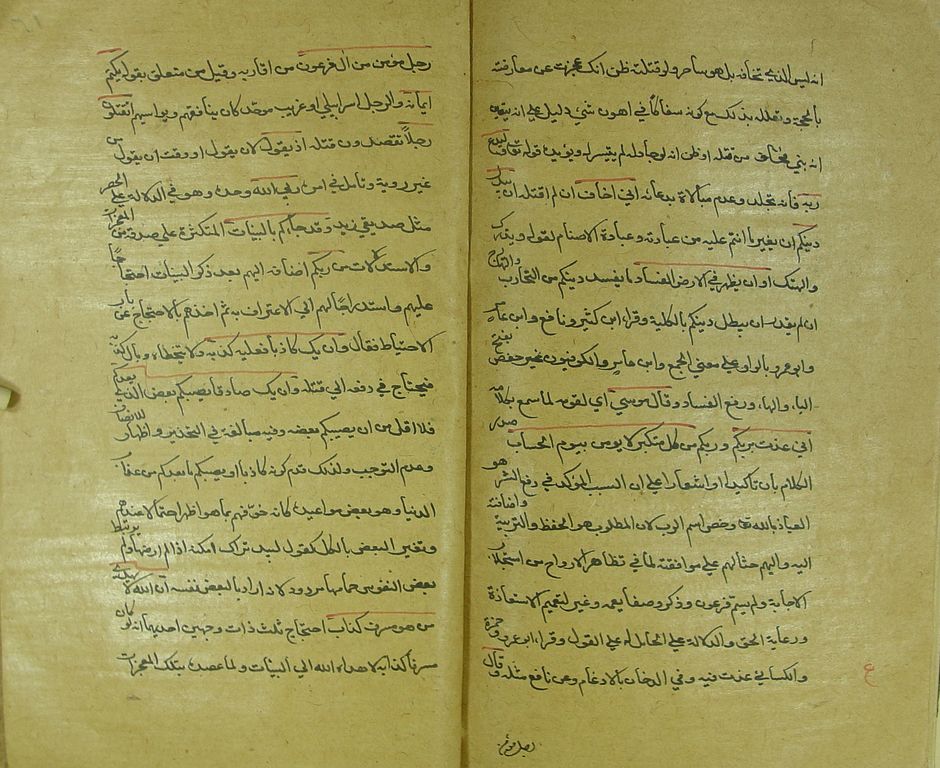 انه ليس الذي تخافه بل هو ساحر ولو قتلته ظن انك عجزت عن معارضته
بالحجة وتعلله بذلك مع كونه سفاكا في اهون شئ دليل على انه تيقن
انه نبي فخاف من قتله او ظن انه لو حاوله لم يتيسر له ويؤيده قوله تعالى وليدع
ربه فانه تجلد وعدم مبالاة بدعائه اني اخاف ان لم اقتله ان يبدل
دينكم ان يغير ما انتم عليه من عبادته وعبادة الاصنام لقوله ويذرك
والهتك او ان يظهر في الارض الفساد ما يفسد دينكم من التحارب والتهارج
ان لم يقدر ان يبطل دينكم بالكلية وقراء ابن كثير ونافع وابن عامر
وابو عمرو بالواو على معنى الجمع وابن عامر والكوفيون غير حفص بفتح
الياء والهاء ورفع الفساد وقال موسى اي لقومه لما سمع بكلامه
اني عذت بربكم وربكم من كل متكبر لا يومن بيوم الحساب صدر
الكلام بان تاكيدا واشعارا على ان السبب المؤكد في دفع الشر هو
العياذ بالله تعا وخص اسم الرب لان المطلوب هو الحفظ والتربية واضافته
اليه واليهم حثا لهم على موافقته لما في تظاهر الارواح من استجلاب
الاجابة ولم يسم فرعون وذكر وصفا يعمه وغيره لتعميم الاستعاذة
ورعاية الحق والدلالة على الحامل له على القول وقراء ابو عمرو وحمزة
والكسائي عذت فيه وفي الدخان بالادغام وعن نافع مثله وقال
رجل مؤمن
رجل مؤمن من ال فرعون من اقاربه وقيل من متعلق بقوله يكتم
ايمانه والرجل اسرائيلي او غريب موحد كان ينافقهم اتقتلون
رجلا تقصدون قتله ان يقول لان يقول او وقت ان يقول من
غير روية وتامل في امره ربي الله وحده وهو في الدلالة على الحصر
مثل صديقي زيد وقد جاءكم بالبينات المتكثرة على صدقه من المعجزات
والاستدلالات من ربكم اضافه اليهم بعد ذكر البينات احتجاجا
عليهم واستدراجا لهم الى الاعتراف به ثم اخذهم بالاحتجاج من باب
الاحتياط فقال وان يك كاذبا فعليه كذبه ولا يتخطاه وبال كذبه
فيحتاج في دفعه الى قتله وان يك صادقا يصبكم بعض الذي يعدكم
فلا اقل من ان يصيبكم بعضه وفيه مبالغة في التحذير واظهار للانصاف
وعدم التعصب ولذلك قدم كونه كاذبا او يصبكم ما يعدكم من عذاب
الدنيا وهو بعض مواعيده كانه خوفهم بما هو اظهر احتمالا عندهم
وتفسير البعض بالكل كقول لبيد تراك امكنة اذا لم ارضها او يرتبط
بعض النفوس حمامها مردود لانه اراد بالبعض نفسه ان الله لا يهدي
من هو مسرف كذاب احتجاج ثالث ذو وجهين احدهما انه لو كان
مسرفا كذابا لما هداه الله الى البينات ولما عضده بتلك المعجزات